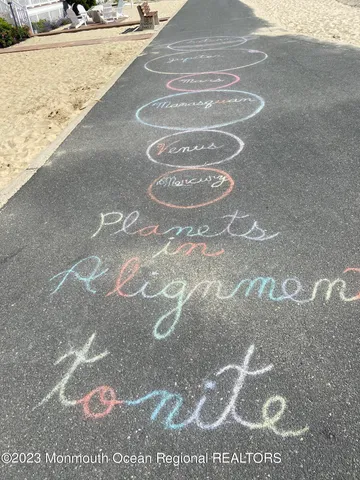 Jupiter
Mars
Manasquan
Venus
Mercury
Planets
in
Alignment
tonite
©2023 Monmouth Ocean Regional REALTORS